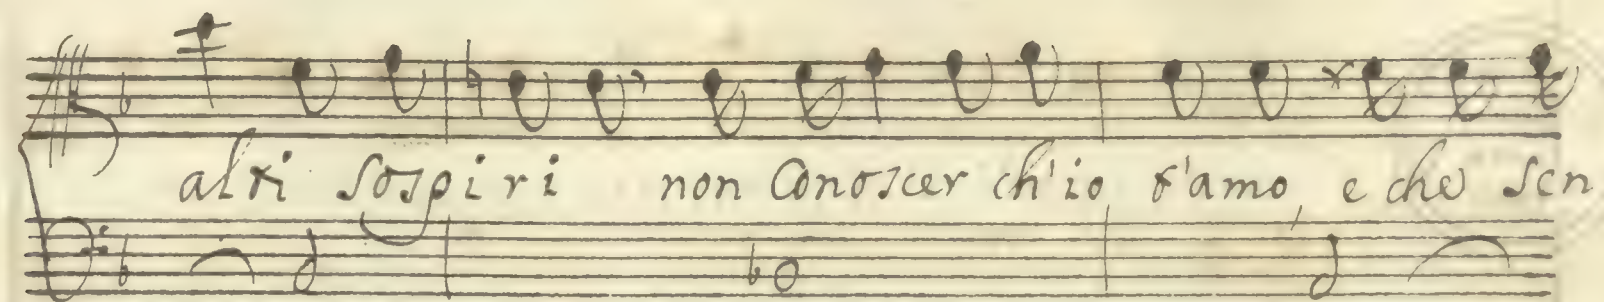 altri sospiri non Conoscer ch'io t'amo, e che sen